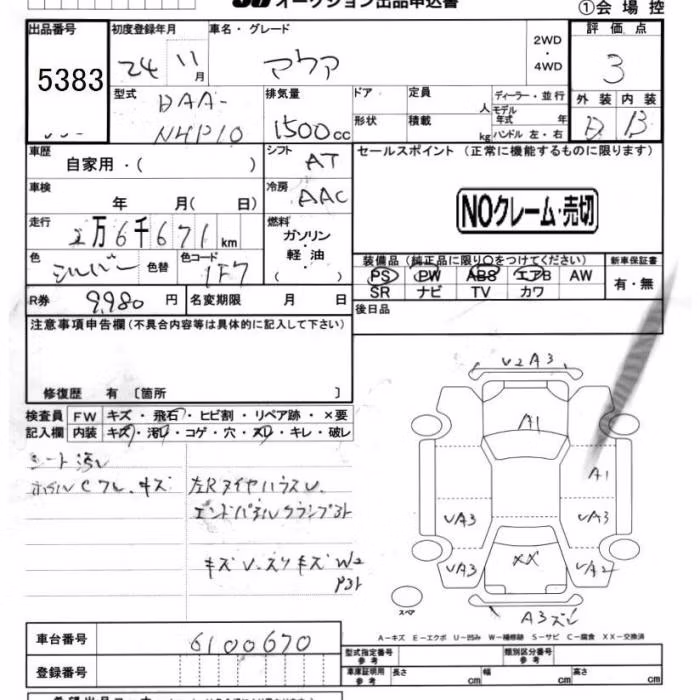 オークション出品申込書
①会場控
出品番号 初度登録年月 車名・グレード 評価点
5383 24 11月 アクア 2WD・4WD 3
型式 排気量 ドア 定員 ディーラー・並行 外装 内装
DAA-NHP10 1500cc 形状 積載 人 kg モデル年式 年 ハンドル 左・右 D B
車歴 シフト セールスポイント (正常に機能するものに限ります)
自家用・( ) AT
車検 冷房
年 月( 日) AAC NOクレーム・売切
走行 燃料
2万6千671km ガソリン・軽油( )
色 色替 色コード 装備品(純正品に限り○をつけてください) 新車保証書
シルバー 1F7 PS PW ABS エアB AW 有・無
SR ナビ TV カワ
R券 9,980円 名変期限 月 日 後日品
注意事項申告欄(不具合内容等は具体的に記入して下さい)
修復歴 有〔箇所 〕
検査員 FW キズ・飛石・ヒビ割・リペア跡・×要
記入欄 内装 キズ・汚レ・コゲ・穴・スレ・キレ・破レ
シート汚レ
ホイルCフレ、キズ 左RタイヤハウスU、
エンドパネルクランプ跡
キズU、スリキズW2
P跡
U2A3
A1
A1
UA3 UA3
UA3 XX UA2
スペア
A3スレ
A－キズ E－エクボ U－凹み W－補修跡 S－サビ C－腐食 XX－交換済
車台番号 6100670
型式指定番号 参考 類別区分番号 参考
登録番号 車庫証明用 参考 長さ cm 幅 cm 高さ cm